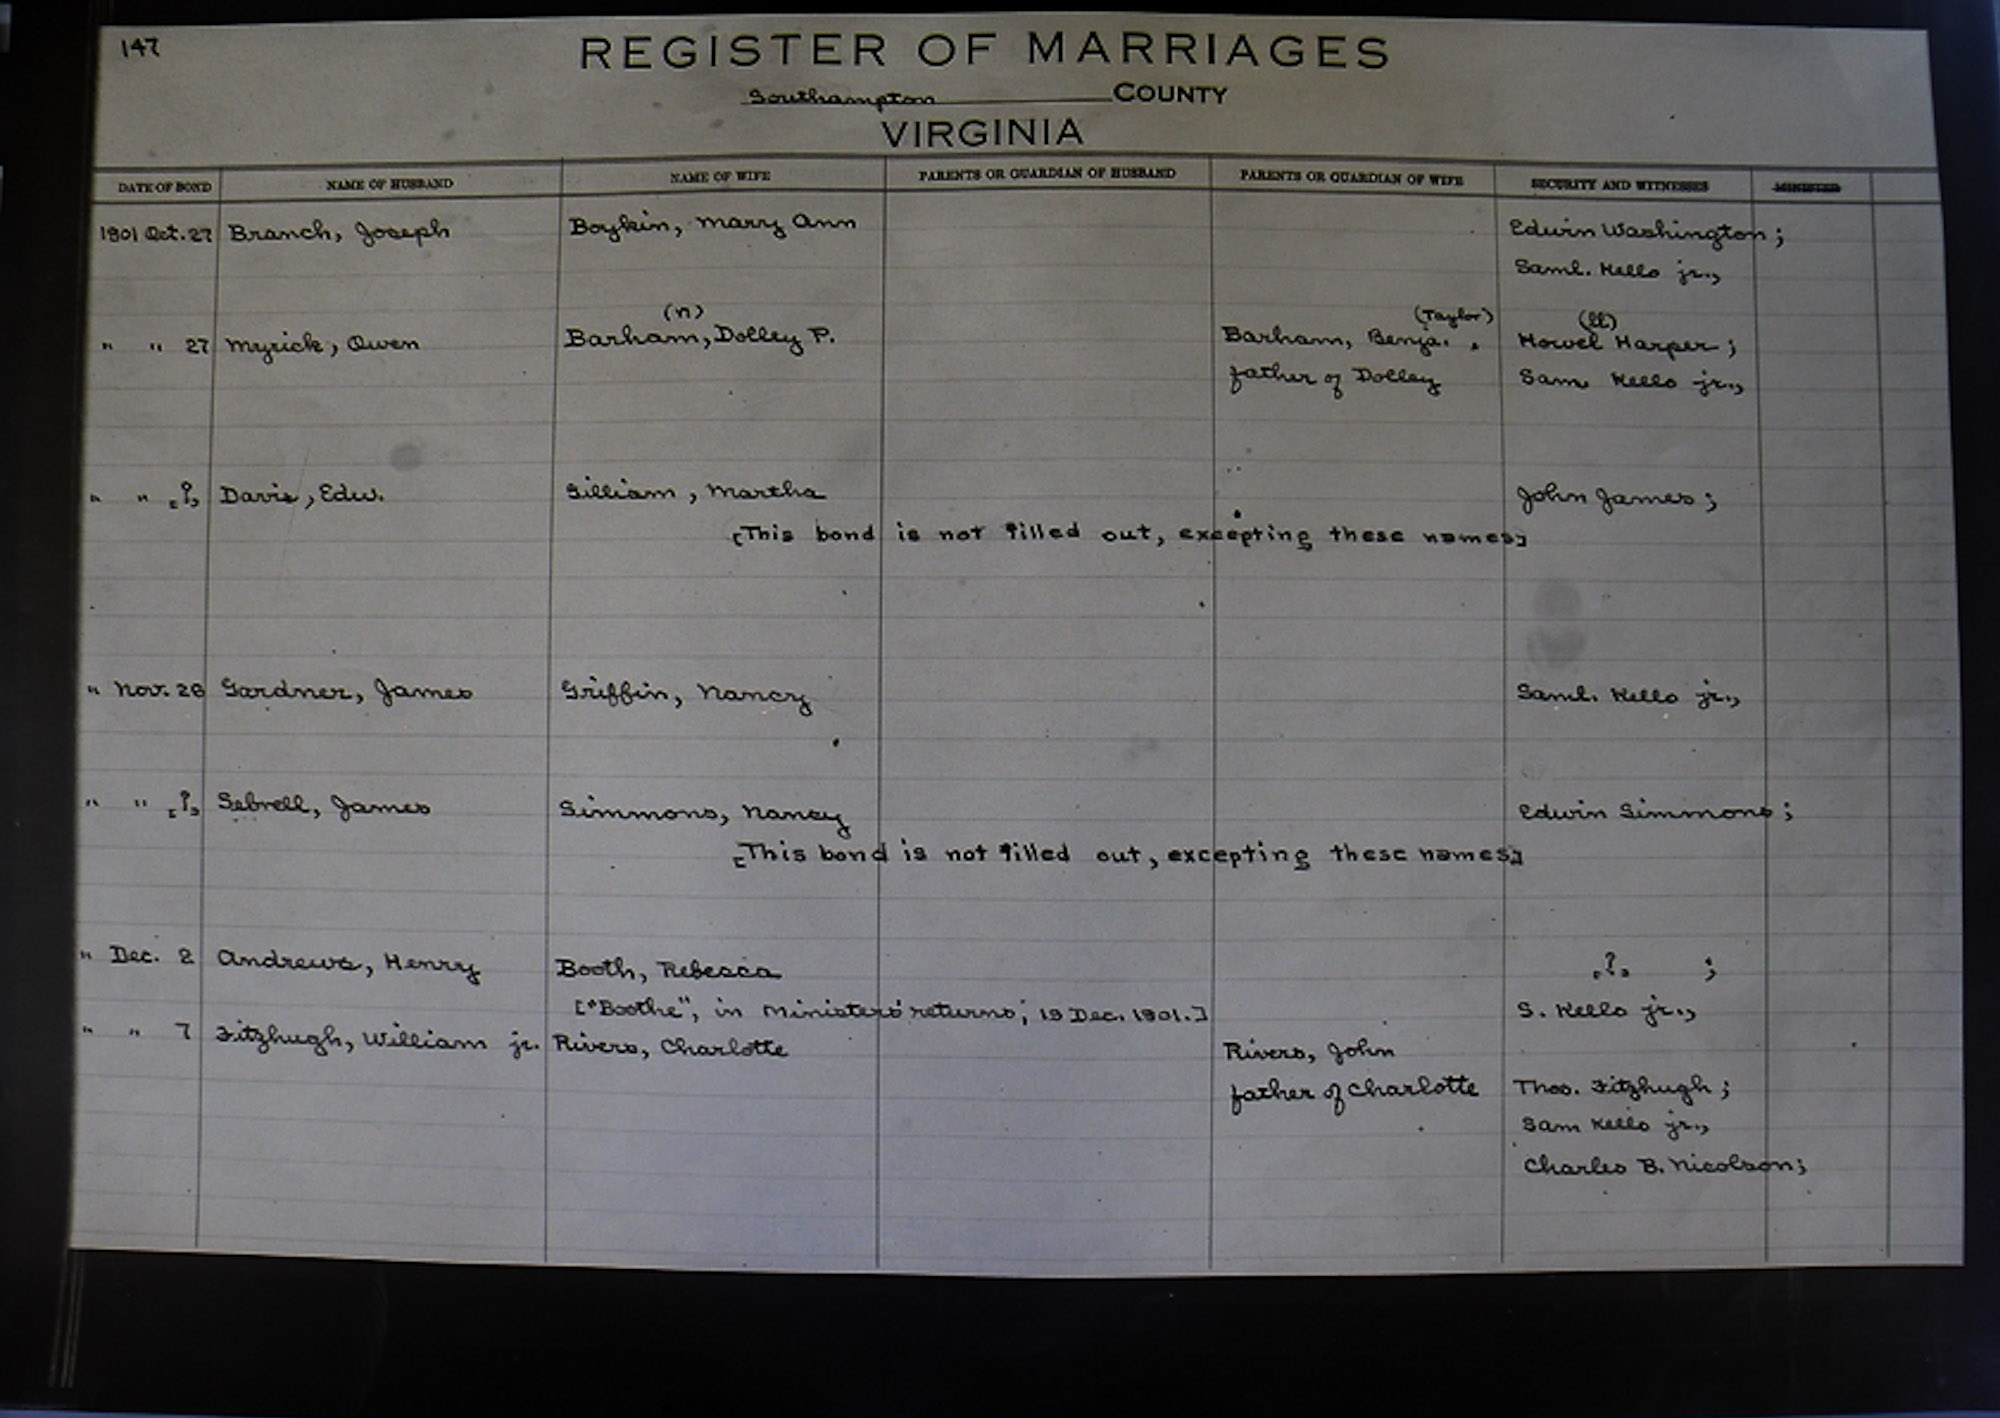 147
REGISTER OF MARRIAGES
Southampton COUNTY
VIRGINIA
DATE OF BOND NAME OF HUSBAND NAME OF WIFE PARENTS OR GUARDIAN OF HUSBAND PARENTS OR GUARDIAN OF WIFE SECURITY AND WITNESSES MINISTER
1801 Oct. 27 Branch, Joseph Boykin, Mary Ann Edwin Washington;
Saml. Kello jr.,
(n) (Taylor) (ll)
" " 27 Myrick, Owen Barham, Dolley P. Barham, Benja. , Howel Harper;
father of Dolley Sam Kello jr.,
" " [?] Davis, Edw. Gilliam, Martha John James;
[This bond is not filled out, excepting these names]
" Nov. 28 Gardner, James Griffin, Nancy Saml. Kello jr.,
" " [?] Sebrell, James Simmons, Nancy Edwin Simmons;
[This bond is not filled out, excepting these names]
" Dec. 2 Andrews, Henry Booth, Rebecca [?] ;
["Boothe", in Ministers' returns; 19 Dec. 1801.] S. Kello jr.,
" " 7 Fitzhugh, William jr. Rivers, Charlotte Rivers, John
father of Charlotte Thos. Fitzhugh;
Sam Kello jr.,
Charles B. Nicolson;